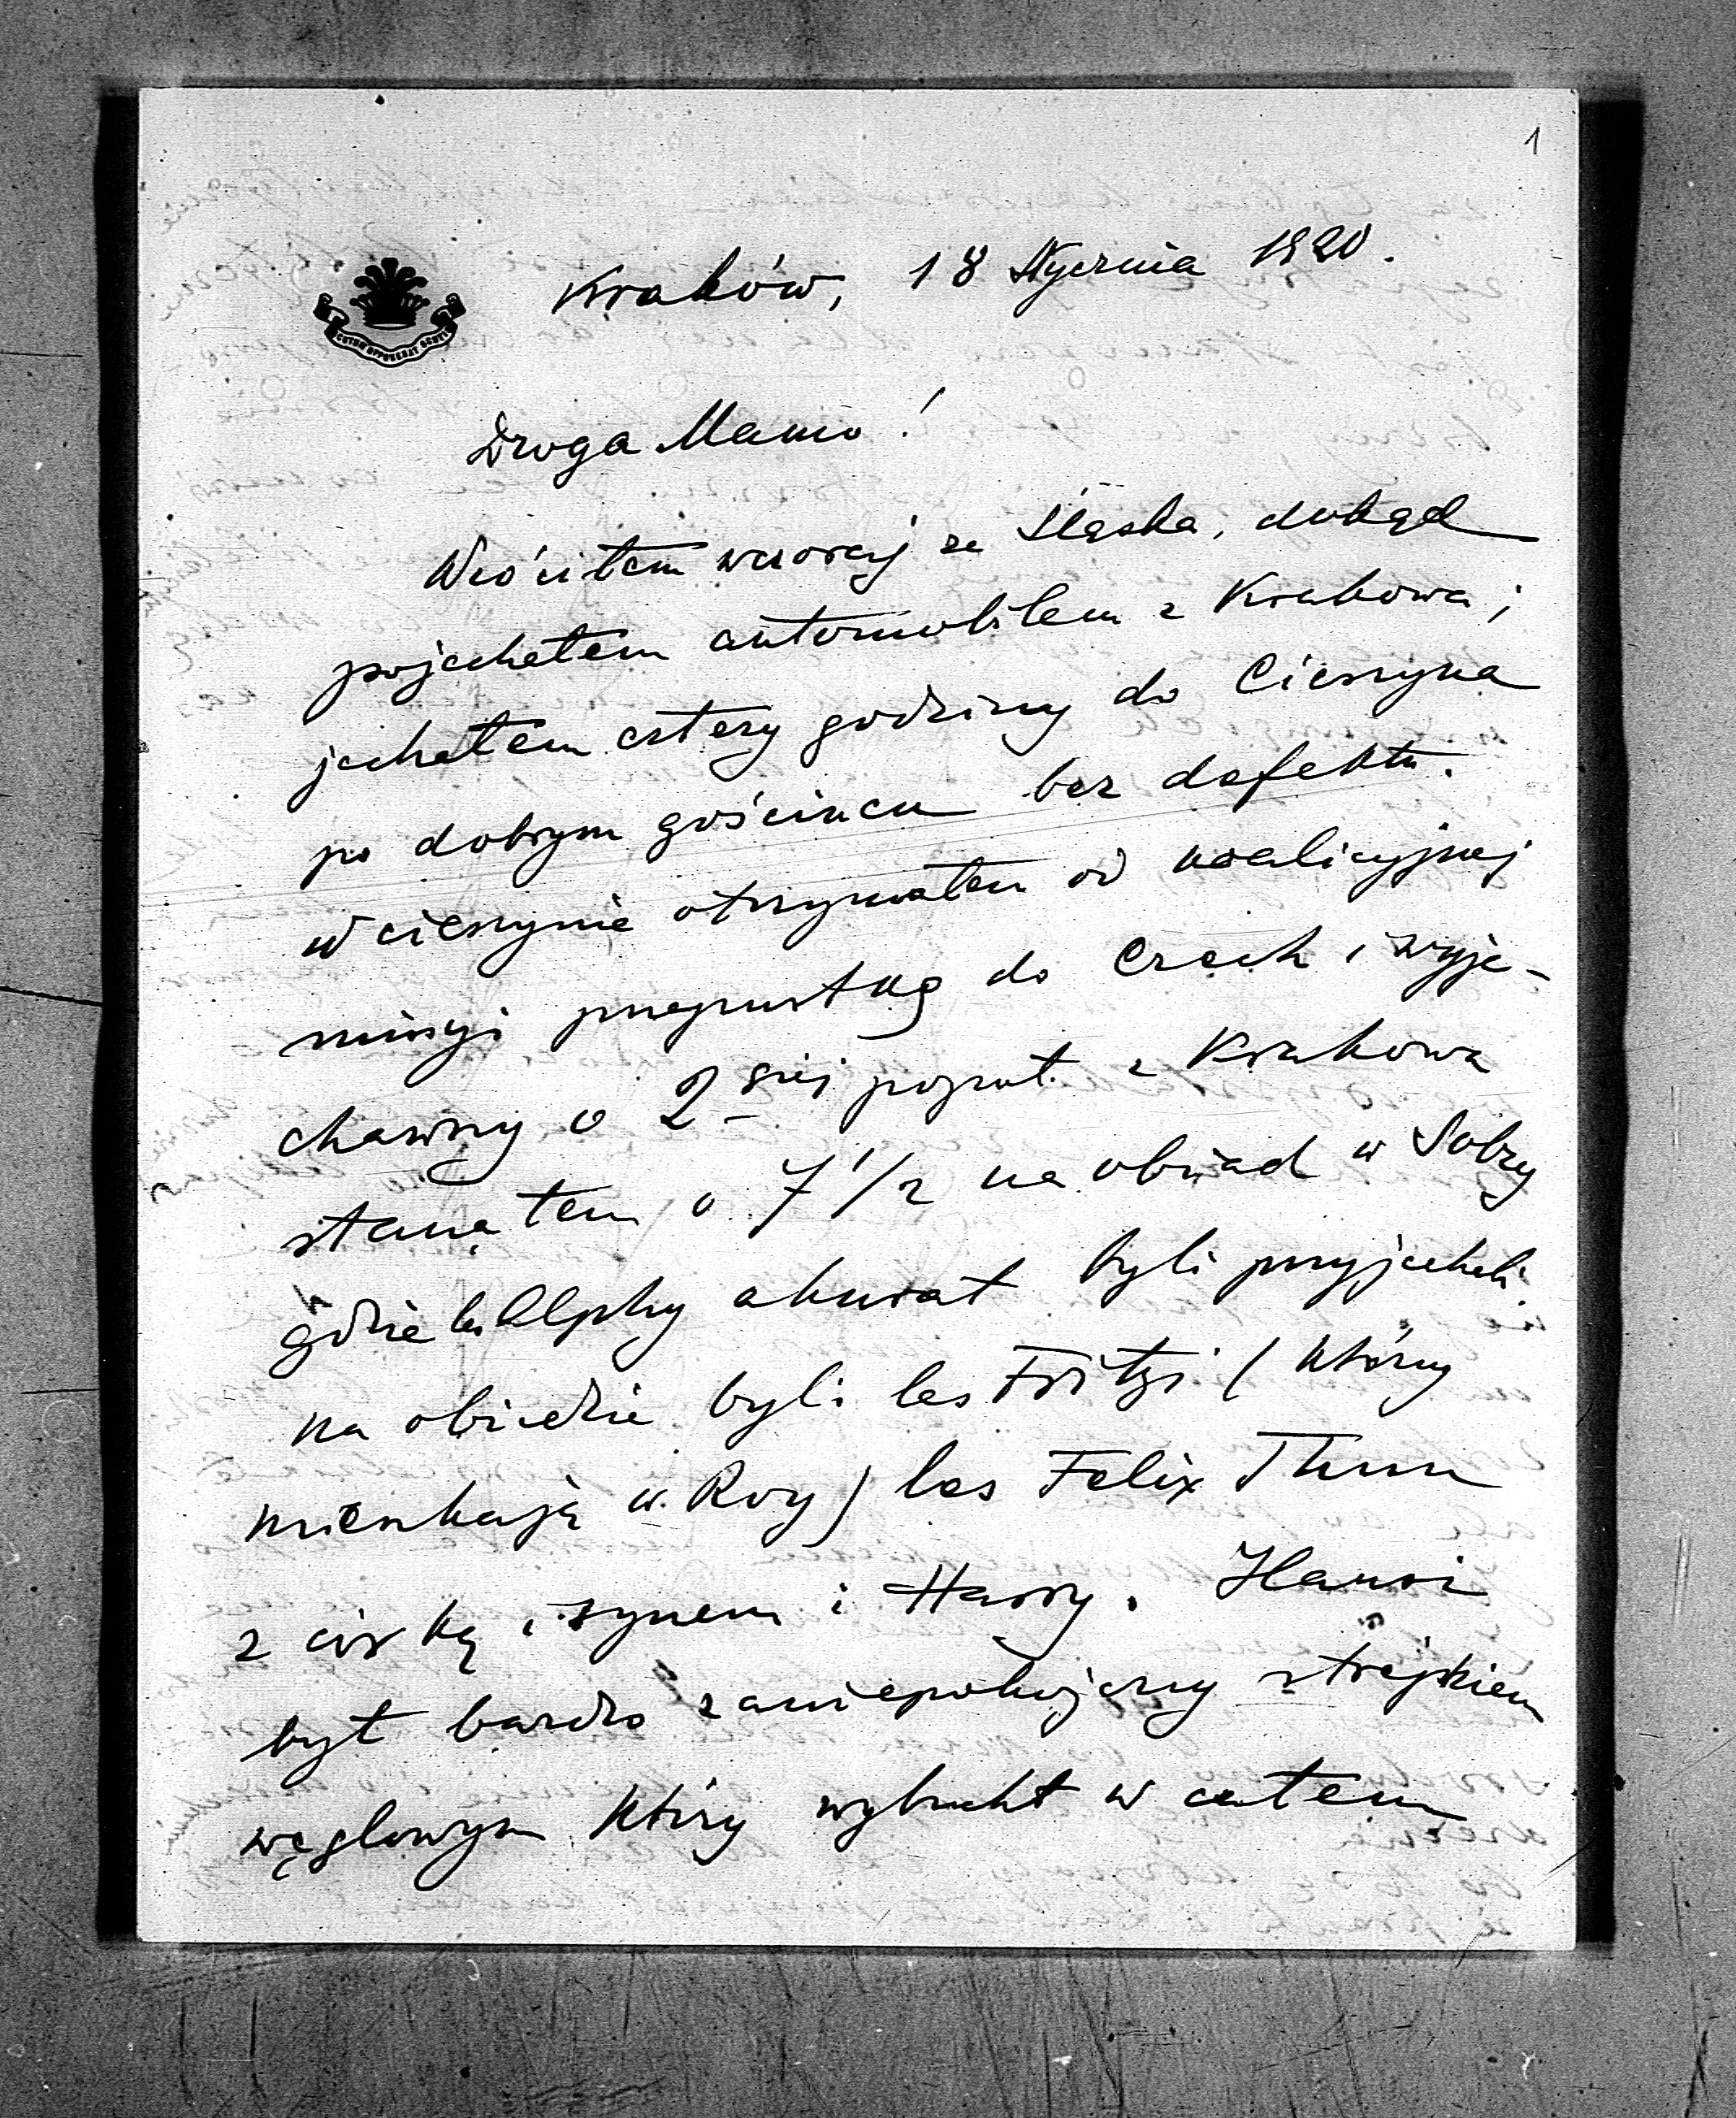 1
Kraków, 18 Stycznia 1920.
Droga Mamo!
Wróciłem wczoraj ze Śląska, dokąd
pojechałem automobilem z Krakowa;
jechałem cztery godziny do Cieszyna
po dobrym gościńcu bez defektu.
w Cieszynie otrzymałem od koalicyjnej
misyi przepustkę do Czech i wyje-
chawszy o 2giej popoł. z Krakowa
stanąłem o 7 1/2 na obiad w Solzy
gdzie les Alphy akurat byli przyjechali.
na obiedzie byli les Fritzi (którzy
mieszkają w Roy) les Felix Thun
z córką i synem i Harry. Hansi
był bardzo zaniepokojony strejkiem
węglowym który wybuchł w całem